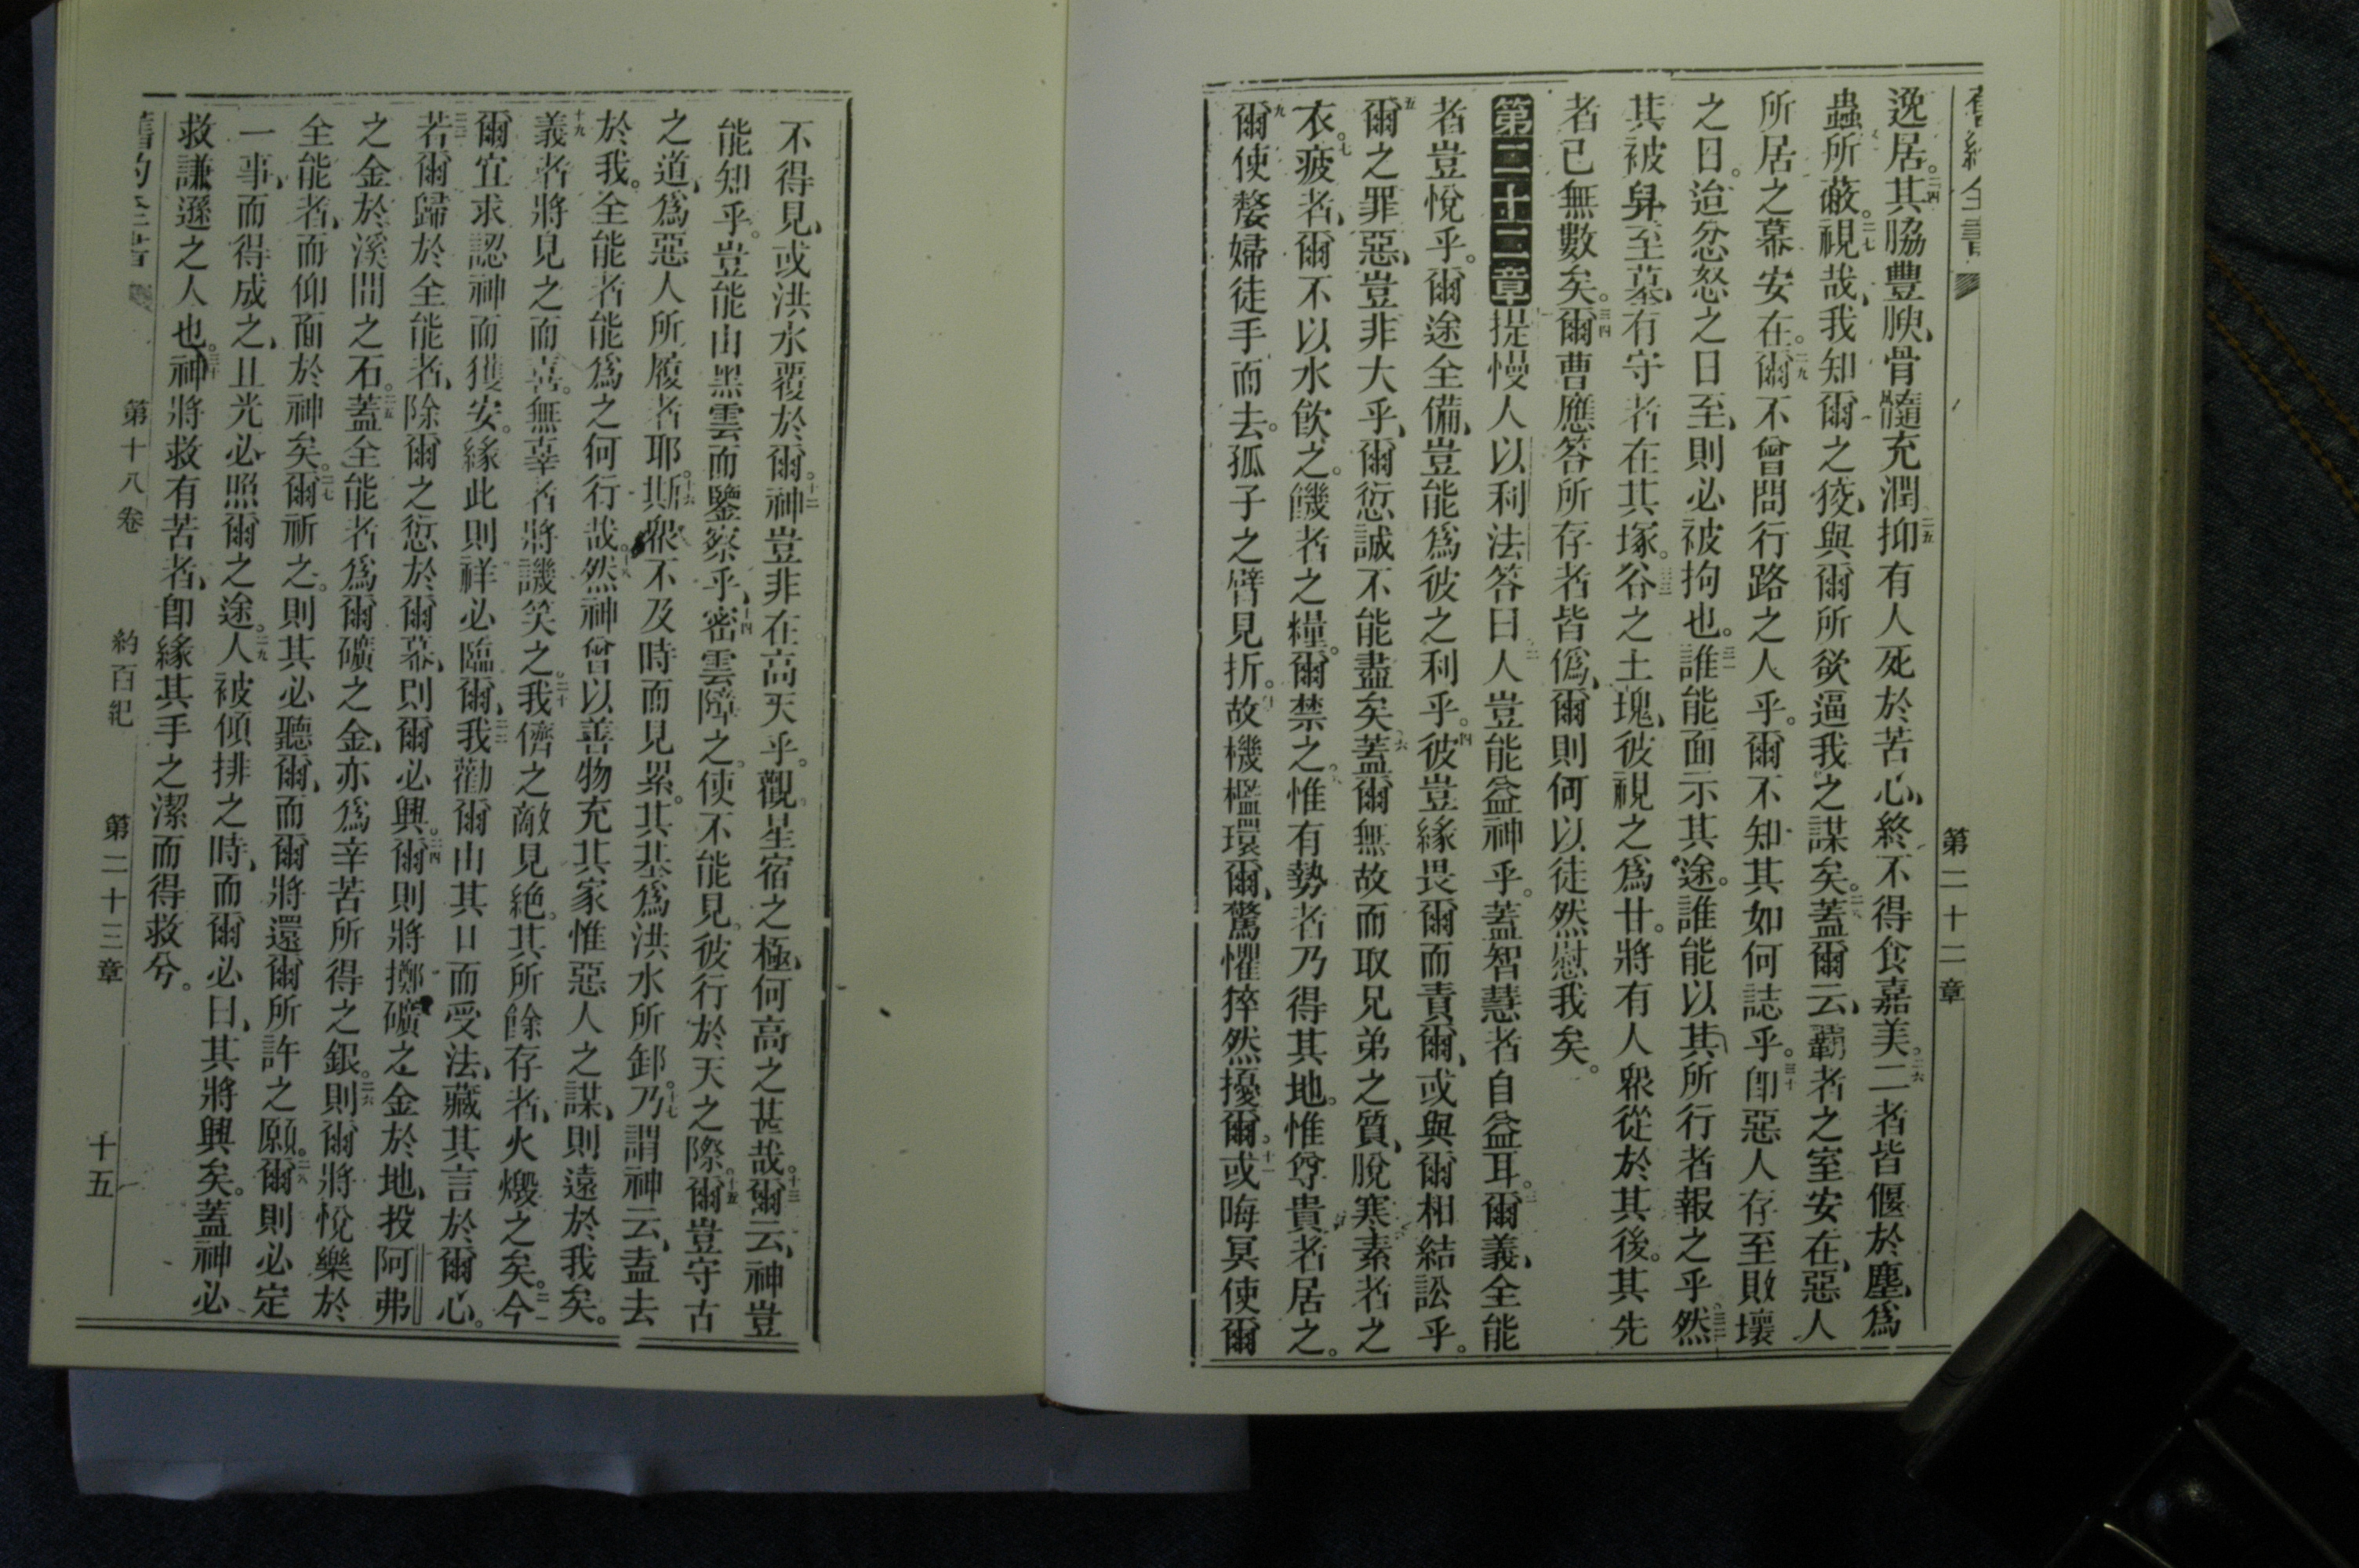 舊約全書 第二十二章
逸居。二四其脇豐腴、骨髓充潤二五抑有人死於苦心、終不得食嘉美。二六二者皆偃於塵、爲
蟲所蔽。二七視哉、我知爾之狡、與爾所欲逼我之謀矣。二八蓋爾云、霸者之室安在、惡人
所居之幕安在。二九爾不曾問行路之人乎。爾不知其如何誌乎。三十卽惡人存至敗壞
之日。迨忿怒之日至、則必被拘也。三一誰能面示其途。誰能以其所行者報之乎。三二然
其被舁至墓、有守者在其塚。三三谷之土塊、彼視之爲甘。將有人衆從於其後。其先
者已無數矣。三四爾曹應答所存者皆僞、爾則何以徒然慰我矣。
第二十二章一提慢人以利法答曰二人豈能益神乎。蓋智慧者自益耳。三爾義、全能
者豈悅乎。爾途全備、豈能爲彼之利乎。四彼豈緣畏爾而責爾、或與爾相結訟乎。
五爾之罪惡、豈非大乎、爾愆誠不能盡矣六蓋爾無故而取兄弟之質、脫寒素者之
衣。七疲者、爾不以水飮之。饑者之糧。爾禁之。八惟有勢者乃得其地。惟尊貴者居之。
九爾使嫠婦徒手而去。孤子之臂見折。十故機檻環爾、驚懼猝然擾爾。十一或晦冥使爾
不得見、或洪水覆於爾。十二神豈非在高天乎。觀星宿之極、何高之甚哉。十三爾云、神豈
能知乎。豈能由黑雲而鑒察乎、十四密雲障之。使不能見。彼行於天之際。十五爾豈守古
之道、爲惡人所履者耶。十六斯衆不及時而見累。其基爲洪水所卸。十七乃謂神云、盍去
於我。全能者能爲之何行哉。十八然神曾以善物充其家惟惡人之謀、則遠於我矣。
十九義者將見之而喜。無辜者將譏笑之。二十我儕之敵見絕。其所餘存者、火燬之矣。二一今
爾宜求認神而獲安。緣此則祥必臨爾、二二我勸爾由其口而受法、藏其言於爾心。
二三若爾歸於全能者、除爾之愆於爾幕、則爾必興。二四爾則將擲礦之金於地、投阿弗
之金於溪間之石。二五蓋全能者爲爾礦之金、亦爲辛苦所得之銀。二六則爾將悅樂於
全能者、而仰面於神矣。二七爾祈之。則其必聽爾、而爾將還爾所許之願。二八爾則必定
一事、而得成之、且光必照爾之途。二九人被傾排之時、而爾必曰、其將興矣。蓋神必
救謙遜之人也。三十神將救有苦者、卽緣其手之潔而得救兮。
舊約全書 第十八卷 約百紀 第二十三章 十五